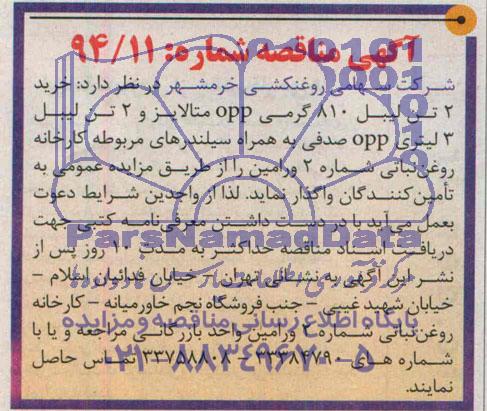 آگهی مناقصه شماره: ۹۴/۱۱
شرکت سهامی روغنکشی خرمشهر در نظر دارد: خرید
۲ تن لیبل ۸۱۰ گرمی opp متالایز و ۲ تن لیبل
۳ لیتری opp صدفی به همراه سیلندرهای مربوطه کارخانه
روغن نباتی شماره ۲ ورامین را از طریق مزایده عمومی به
تأمین‌کنندگان واگذار نماید. لذا از واجدین شرایط دعوت
بعمل می‌آید با در دست داشتن معرفی‌نامه کتبی جهت
دریافت اسناد مناقصه حداکثر به مدت ۱۰ روز پس از
نشر این آگهی به نشانی تهران – خیابان فدائیان اسلام –
خیابان شهید غیبی – جنب فروشگاه نجم خاورمیانه – کارخانه
روغن نباتی شماره ۲ ورامین واحد بازرگانی مراجعه و یا با
شماره های ۳۳۳۸۴۷۹۰ – ۳۳۷۵۸۸۰۸ تماس حاصل
نمایند.
ParsNamadData
پایگاه اطلاع رسانی مناقصه و مزایده
۰۲۱-۸۸۳۴۹۶۷۰-۵